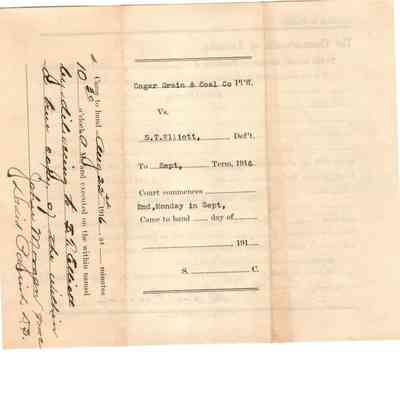 Cogar Grain & Coal Co Pl'ff.
Vs.
S.T.Elliott, Def't.
To Sept, Term, 1916
Court commences
2nd, Monday in Sept,
Came to hand day of
191
S. C.
Came to hand Aug 22 1916, at minutes
10 30 o'clock A M and executed on the within named
by delivering to S.T. Elliott
A true copy of the within
Morgan